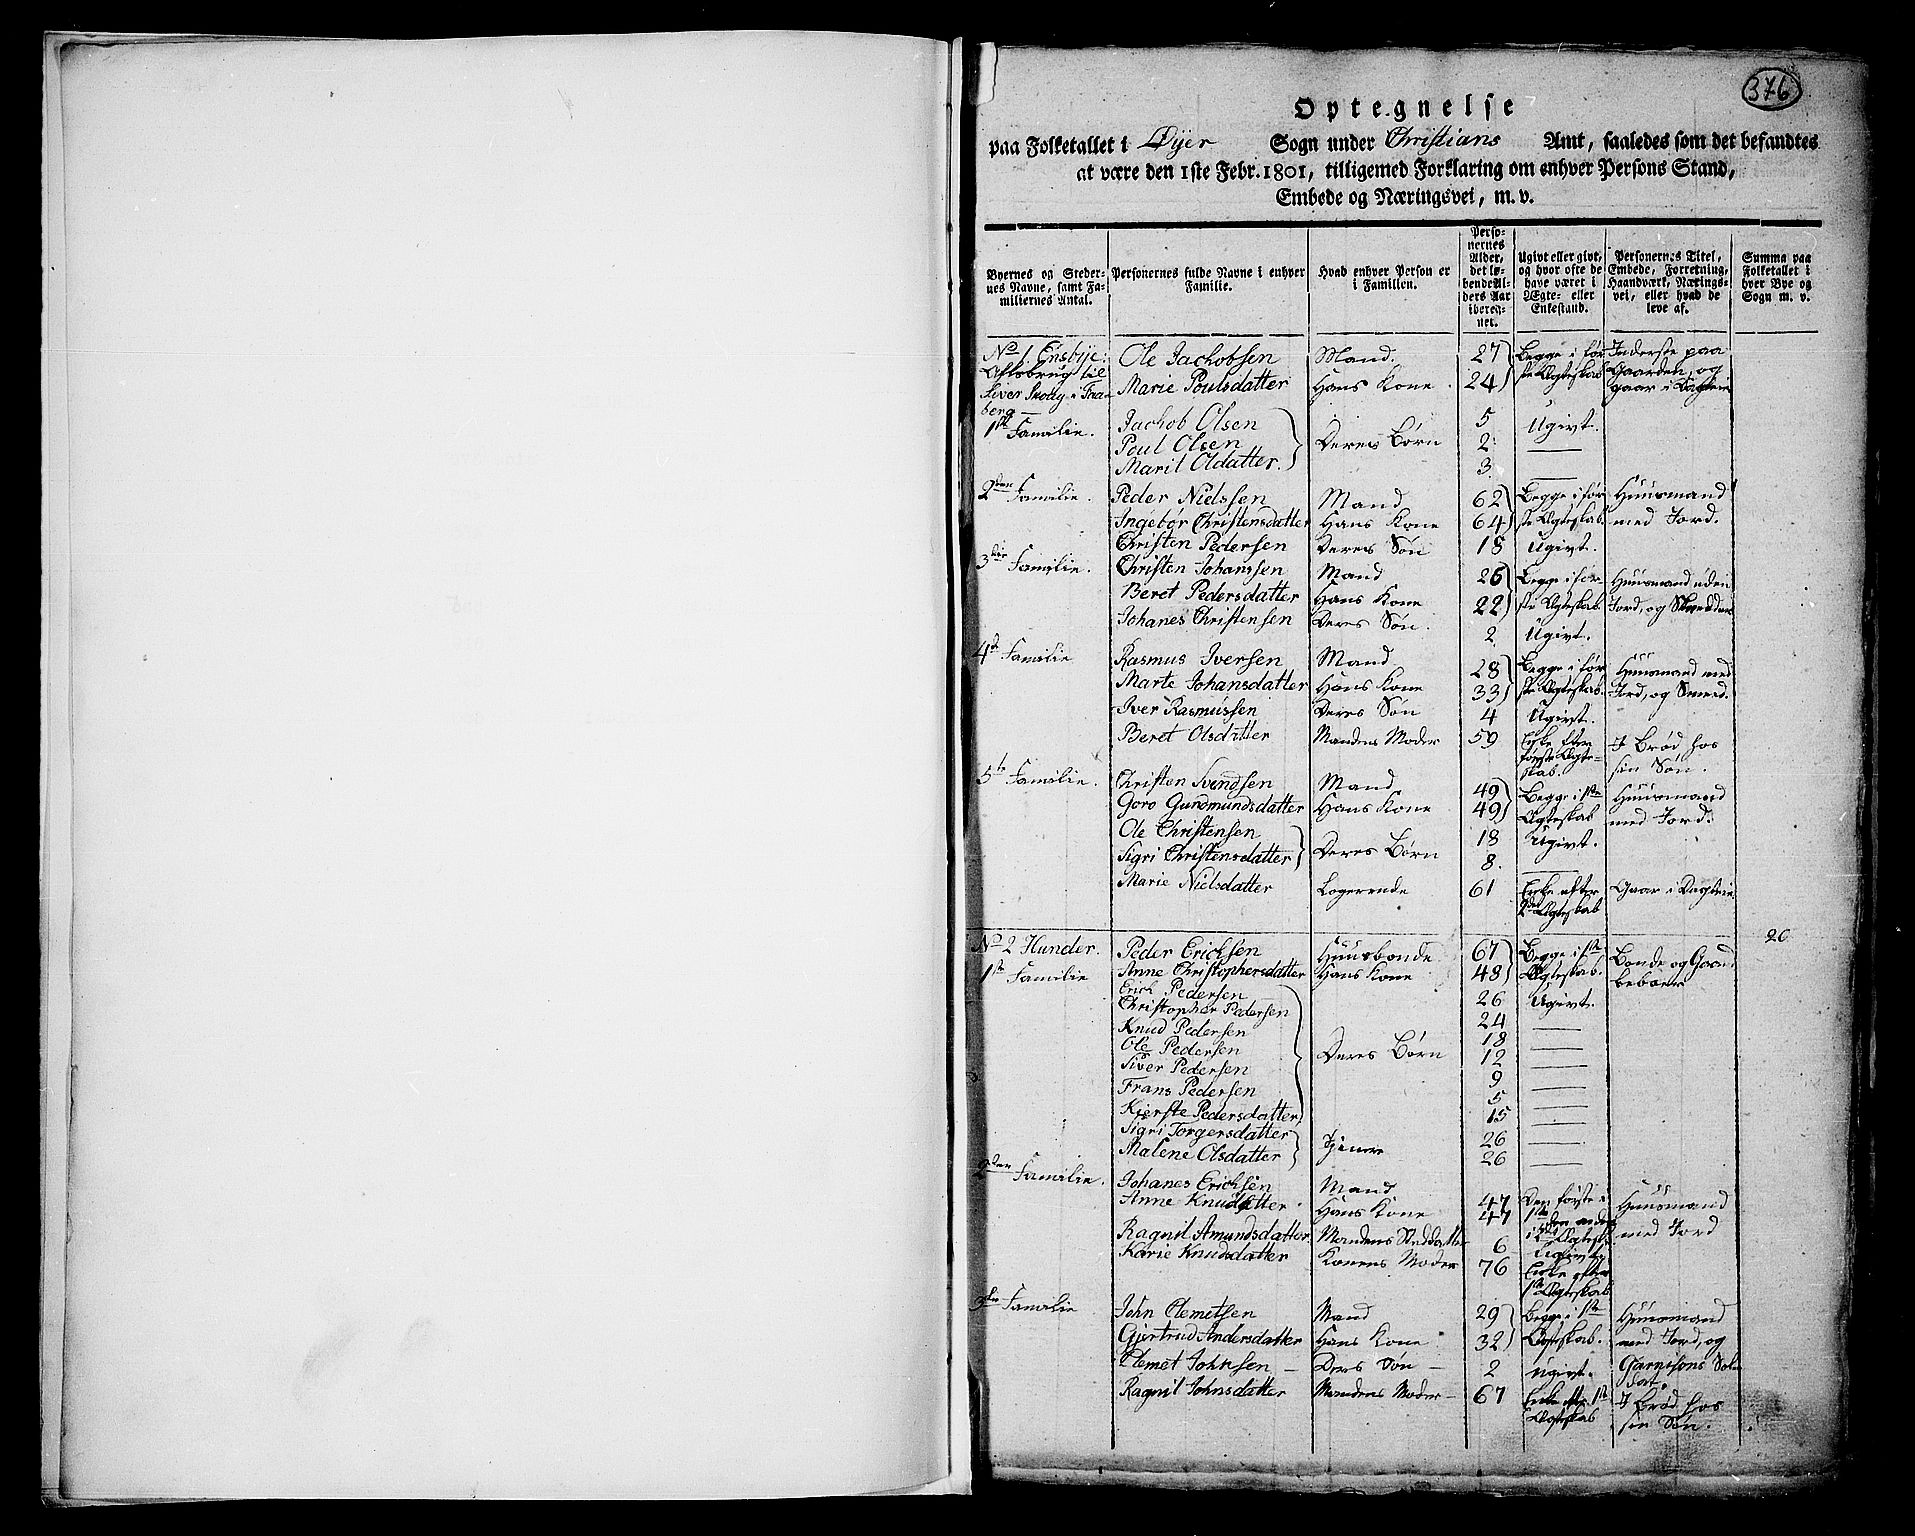 376
Optegnelse
paa Folketallet i Øyer Sogn under Christians Amt, saaledes som det befandtes
at være den 1ste Febr. 1801, tilligemed Forklaring om enhver Persons Stand,
Embede og Næringsvei, m. v.
Byernes og Stedernes Navne, samt Familiernes Antal. | Personernes fulde Navne i enhver Familie. | Hvad enhver Person er i Familien. | Personernes Alder, det løbende Alders Aar iberegnet. | Ugivt eller givt, og hvor ofte de have været i Ægte- eller Enkestand. | Personernes Titel, Embede, Forretning, Haandværk, Næringsvei, eller hvad de leve af. | Summa paa Folketallet i hver Bye og Sogn m. v.
No 1. Ensbye. Ole Jachobsen Mand. 27 Begge i før Inderste paa
Afsbrug til Marie Poulsdatter Hans Kone. 24 ste Ægteskab Gaarden, og
Siver Skoug i Faa gaar i Dagleie
berg
1ste Familie. Jachob Olsen 5 Ugivt.
Poul Olsen Deres Børn 2 —
Maril Oldatter. 3. —
2den Familie. Peder Nielssen Mand 62 Begge i før Huusmand
Ingebør Christensdatter Hans Kone 64 ste Ægteskab. med Jord.
Christen Pedersen Deres Søn 18 Ugivt.
3die Familie. Christen Johanssen Mand 26 Begge i før- Huusmand uden
Beret Pedersdatter Hans Kone 22 ste Ægteskab. Jord, og Skredder
Johanes Christensen Deres Søn. 2. Ugivt.
4de Familie Rasmus Iversen Mand 28 Begge i før Huusmand med
Marte Johansdatter Hans Kone 33 ste Ægteskab. Jord, og Smed.
Iver Rasmussen Deres Søn 4 Ugivt.
Beret Olsdatter Mandens Moder 59 Enke efter J Brød hos
første Ægte- sin Søn.
skab.
5te Familie. Christen Svendsen Mand 49 Begge i 1ste Huusmand
Goro Gundmundsdatter Hans Kone 49 Ægteskab med Jord.
Ole Christensen 18 Ugivt.
Sigri Christensdatter Deres Børn 8. —
Marie Nielsdatter Logerende 61 Enke efter Gaar i Dagleie
2det Ægteskab
20
No 2 Hunder. Peder Erichsen Huusbonde 67 Begge i 1ste Bonde og Gaard
1ste Familie Anne Christophersdatter Hans Kone 48 Ægteskab. beboer
Erich Pedersen 26 Ugivt.
Christopher Pedersen 24 —
Knud Pedersen 18 —
Ole Pedersen Deres Børn 12 —
Siver Pedersen 9 —
Frans Pedersen 5 —
Kierste Pedersdatter 15 —
Sigri Torgersdatter Tjenere 26 —
Malene Olsdatter 26 —
2den Familie. Johanes Erichsen Mand 47 Den første i Huusmand
Anne Knudsdatter Hans Kone 47 1ste den anden med Jord
Ragnil Amundsdatter Mandens Steddatter 6 i 2det Ægtesk. Ugivt
Karie Knudsdatter Konens Moder 76 Enke efter
1ste Ægteskab
3die Familie John Clemetsen Mand 29 Begge i 1ste Huusmand
Gjertrud Andersdatter Hans Kone 32 Ægteskab. med Jord, og
Clemet Johnsen — Ders Søn — 2 ugivt. Garnisons Sol
dat.
Ragnil Johnsdatter Mandens Moder — 67 Enke efter 1ste J Brød hos
Ægteskab sin Søn.